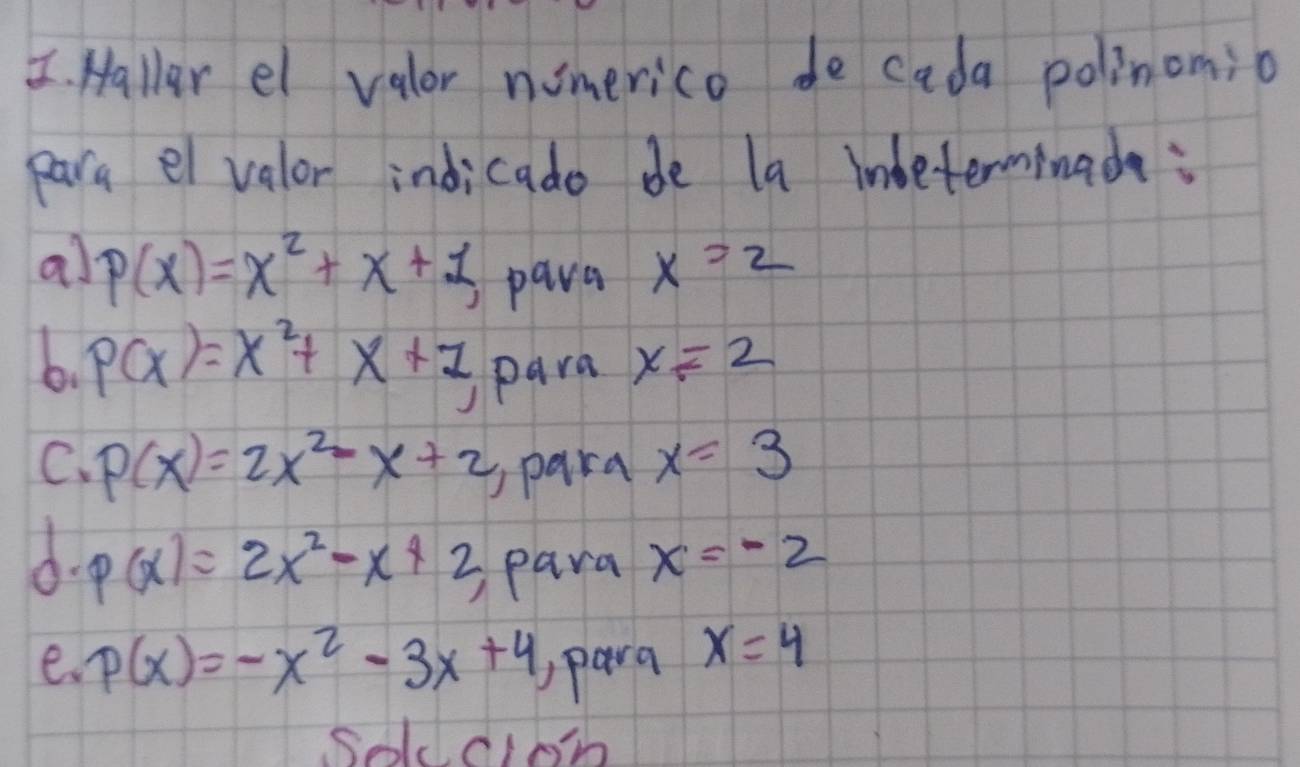 1. Hallar el valor númerico de cada polinomio
para el valor indicado de la indeterminada:
a) P(x) = x² + x + 1, para x = 2
b. P(x) = x² + x + 1, para x = 2
C. P(x) = 2x² - x + 2, para x = 3
d. p(x) = 2x² - x + 2, para x = -2
e. P(x) = -x² - 3x + 4, para x = 4
Solución